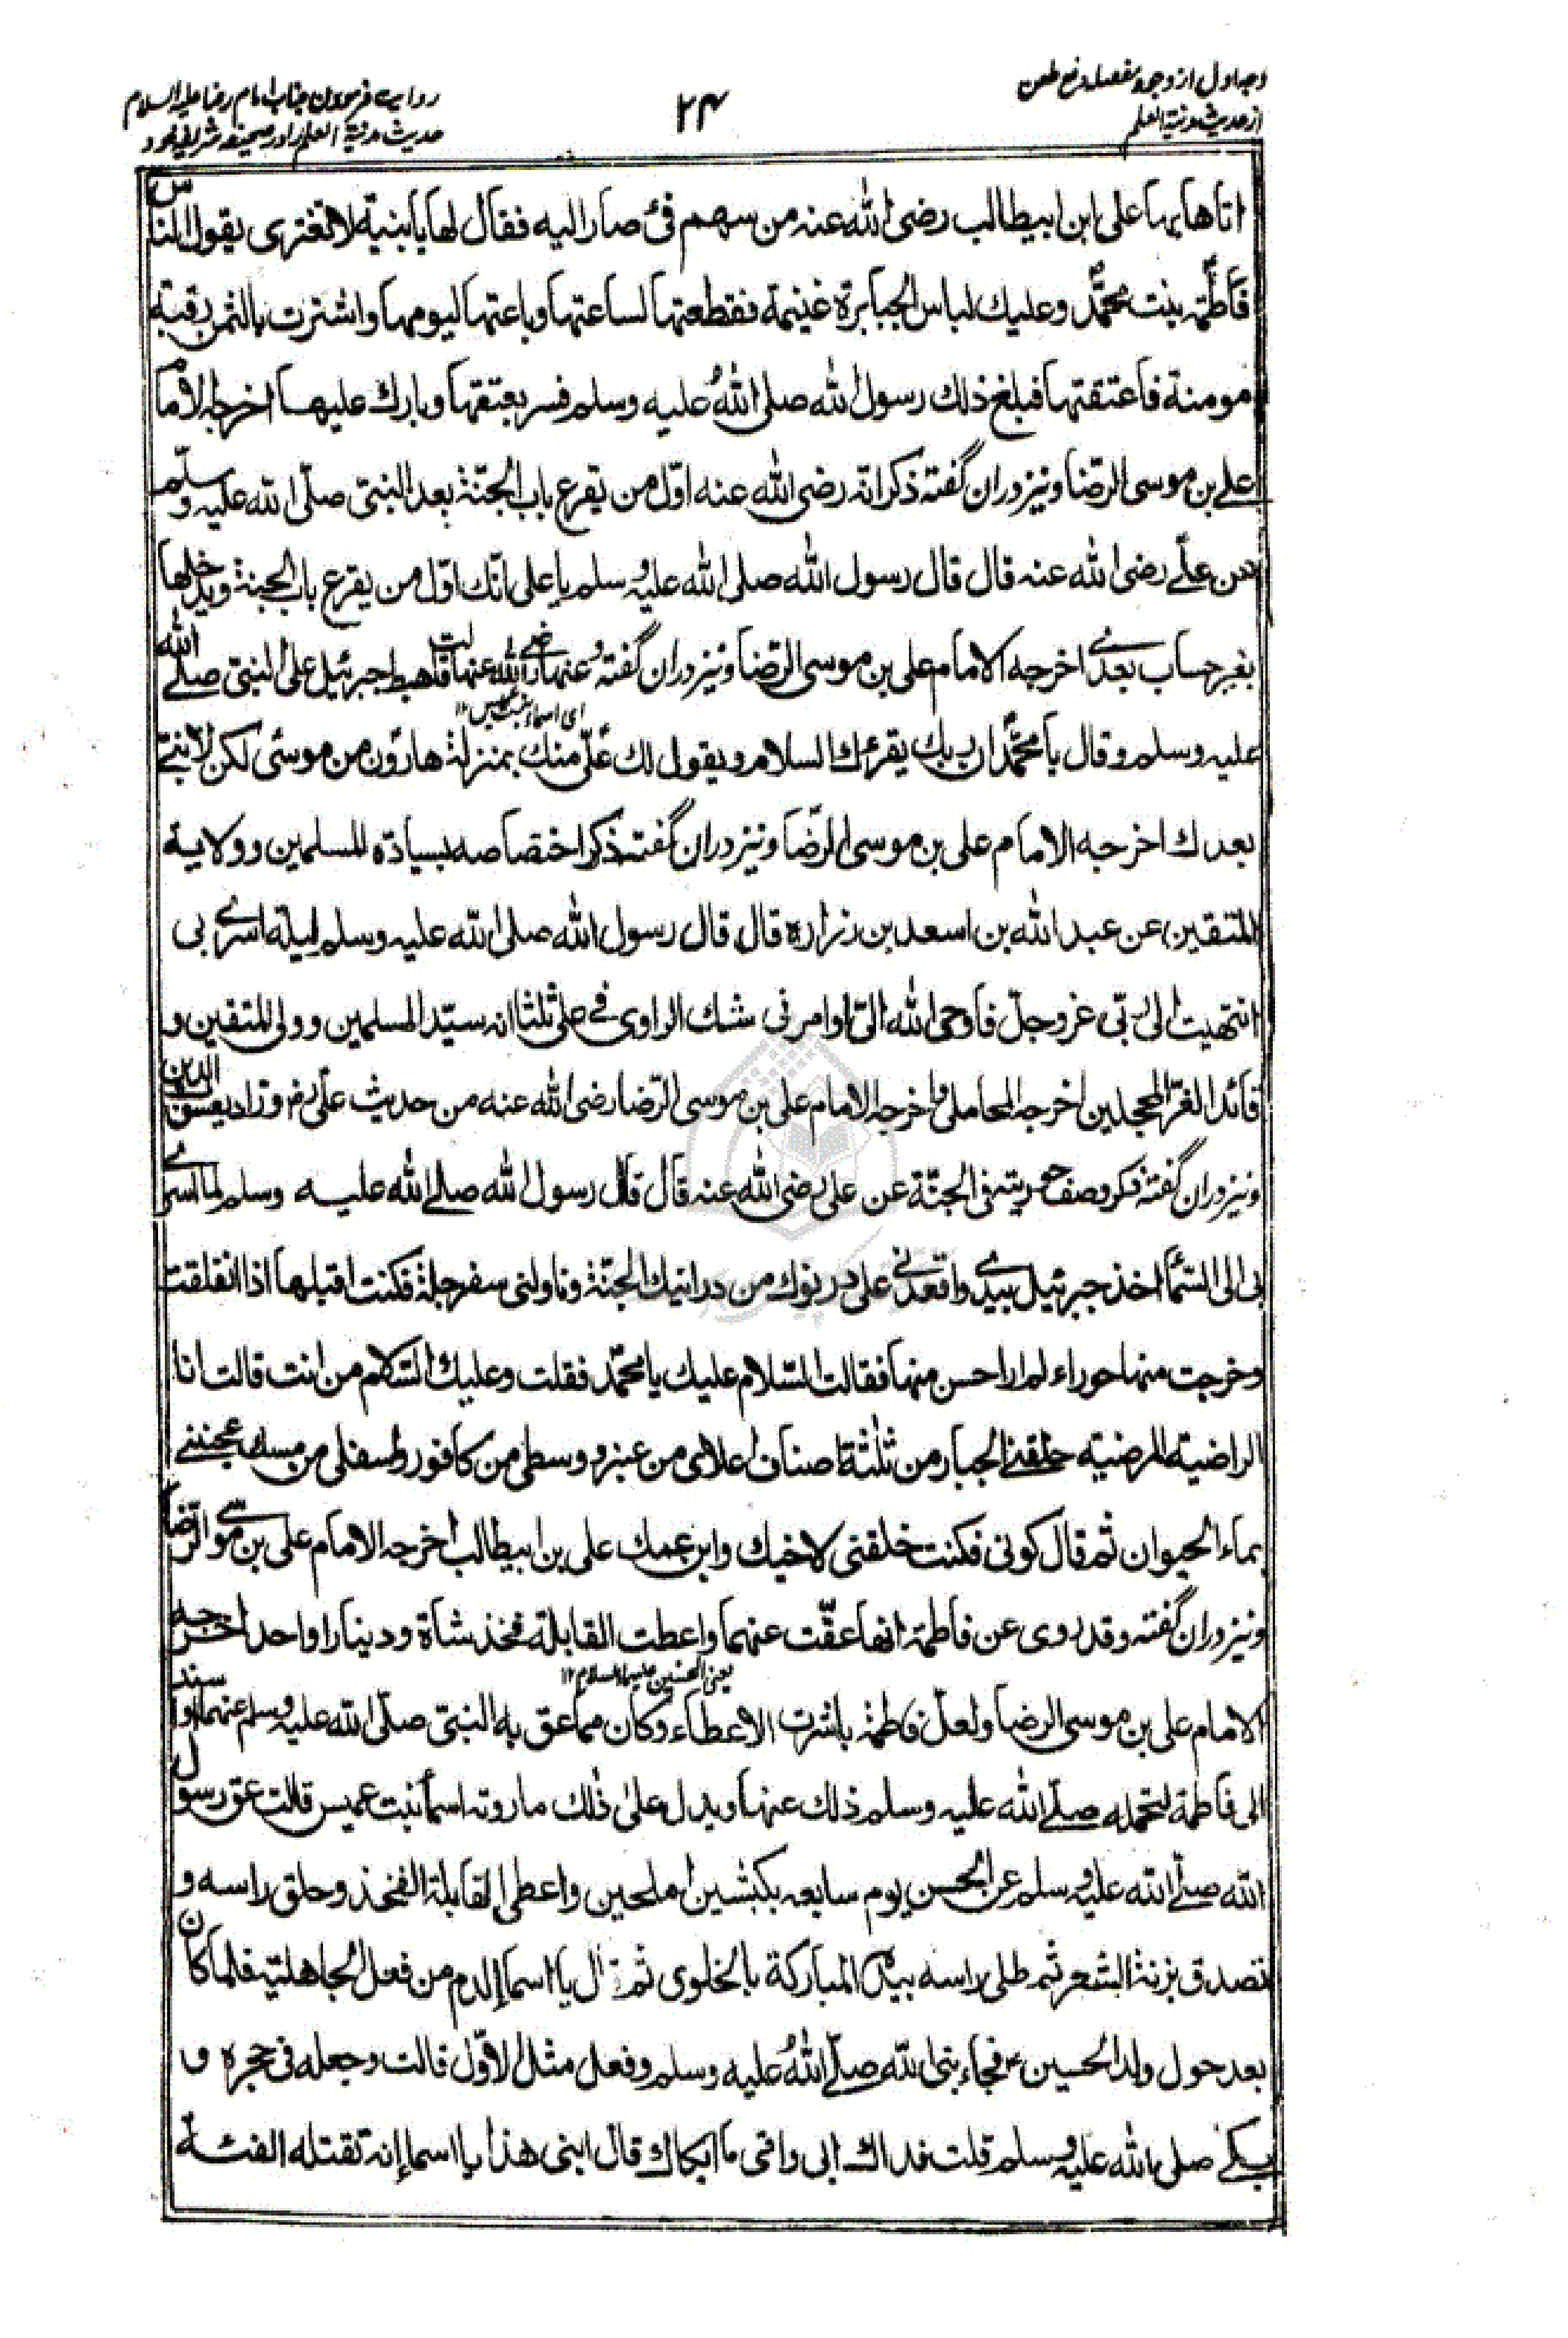 وجه اول از وجوه مفصله دفع طعن
از حدیث مدینة العلم
۲۴
روایت فرمودن جناب امام رضا علیه السلام
حدیث مدینة العلم را در صحیفه شریفه خود
اتاها بها علی ابن ابیطالب رضی الله عنه من سهم فئ صار الیه فقال لها یا بنیة لا تغتری بقول الناس
فاطمة بنت محمد وعلیك لباس الجبابرة غنیمة فقطعتها لساعتها وباعتها لیومها واشترت بالثمن رقبة
مومنة فاعتقتها فبلغ ذلك رسول الله صلی الله علیه وسلم فسر بعتقها وبارك علیها اخرجه الامام
علی بن موسی الرضا ونیز دران گفته ذكر انه رضی الله عنه اول من یقرع باب الجنة بعد النبی صلی الله علیه وسلم
عن علی رضی الله عنه قال قال رسول الله صلی الله علیه وسلم یا علی انك اول من یقرع باب الجنة ویدخلها
بغیر حساب بعدی اخرجه الامام علی بن موسی الرضا ونیز دران گفته وعنها رضی الله عنها قالت هبط جبرئیل علی النبی صلی الله
ای اسماء بنت عمیس ۱۲
علیه وسلم وقال یا محمد ان ربك یقرئك السلام ویقول لك علی منك بمنزلة هارون من موسی لکن لا نبی
بعدك اخرجه الامام علی بن موسی الرضا ونیز دران گفته ذکر اختصاصه بسیادة المسلمین وولایة
المتقین عن عبد الله بن اسعد بن زراره قال قال رسول الله صلی الله علیه وسلم لیلة اسری بی
انتهیت الی ربی عز وجل فاوحی الله الی او امرنی شك الراوی فی علی ثلثا انه سید المسلمین وولی المتقین و
قائد الغر المحجلین اخرجه المحاملی واخرجه الامام علی بن موسی الرضا رضی الله عنه من حدیث علی رض وزاد یعسوب الدین
ونیز دران گفته ذکر وصف حوریته فی الجنة عن علی رضی الله عنه قال قال رسول الله صلی الله علیه وسلم لما اسری
بی الی السماء اخذ جبرئیل بیدی واقعدنی علی درنوك من درانیك الجنة وناولنی سفرجلة فکنت اقبلها اذا انفلقت
وخرجت منها حوراء لم ار احسن منها فقالت السلام علیك یا محمد فقلت وعلیك السلام من انت قالت انا
الراضیة المرضیة خلقنی الجبار من ثلثة اصناف اعلای من عنبر ووسطی من کافور واسفلی من مسك عجننی
بماء الحیوان ثم قال کونی فکنت خلقنی لاخیك وابن عمك علی بن ابیطالب اخرجه الامام علی بن موسی الرضا
ونیز دران گفته وقد روی عن فاطمة انها عقت عنهما واعطت القابلة فخذ شاة ودینارا واحدا اخرجه
یعنی الحسنین علیهما السلام ۱۲
الامام علی بن موسی الرضا ولعل فاطمة باشرت الاعطاء وکان مما عق به النبی صلی الله علیه وسلم عنهما واسند
الی فاطمة لتحمله صلی الله علیه وسلم ذلك عنها ویدل علی ذلك ما روته اسماء بنت عمیس قالت عق رسول
الله صلی الله علیه وسلم عن الحسن یوم سابعه بکبشین املحین واعطی القابلة الفخذ وحلق راسه و
تصدق بزنة الشعر ثم طلی راسه بیده المبارکة بالخلوق ثم قال یا اسماء الدم من فعل الجاهلیة فلما کان
بعد حول ولد الحسین فجاء نبی الله صلی الله علیه وسلم وفعل مثل الاول قالت وجعله فی حجره و
بکی صلی الله علیه وسلم قلت فداك ابی وامی ما ابکاك قال ابنی هذا یا اسماء إنه تقتله الفئة